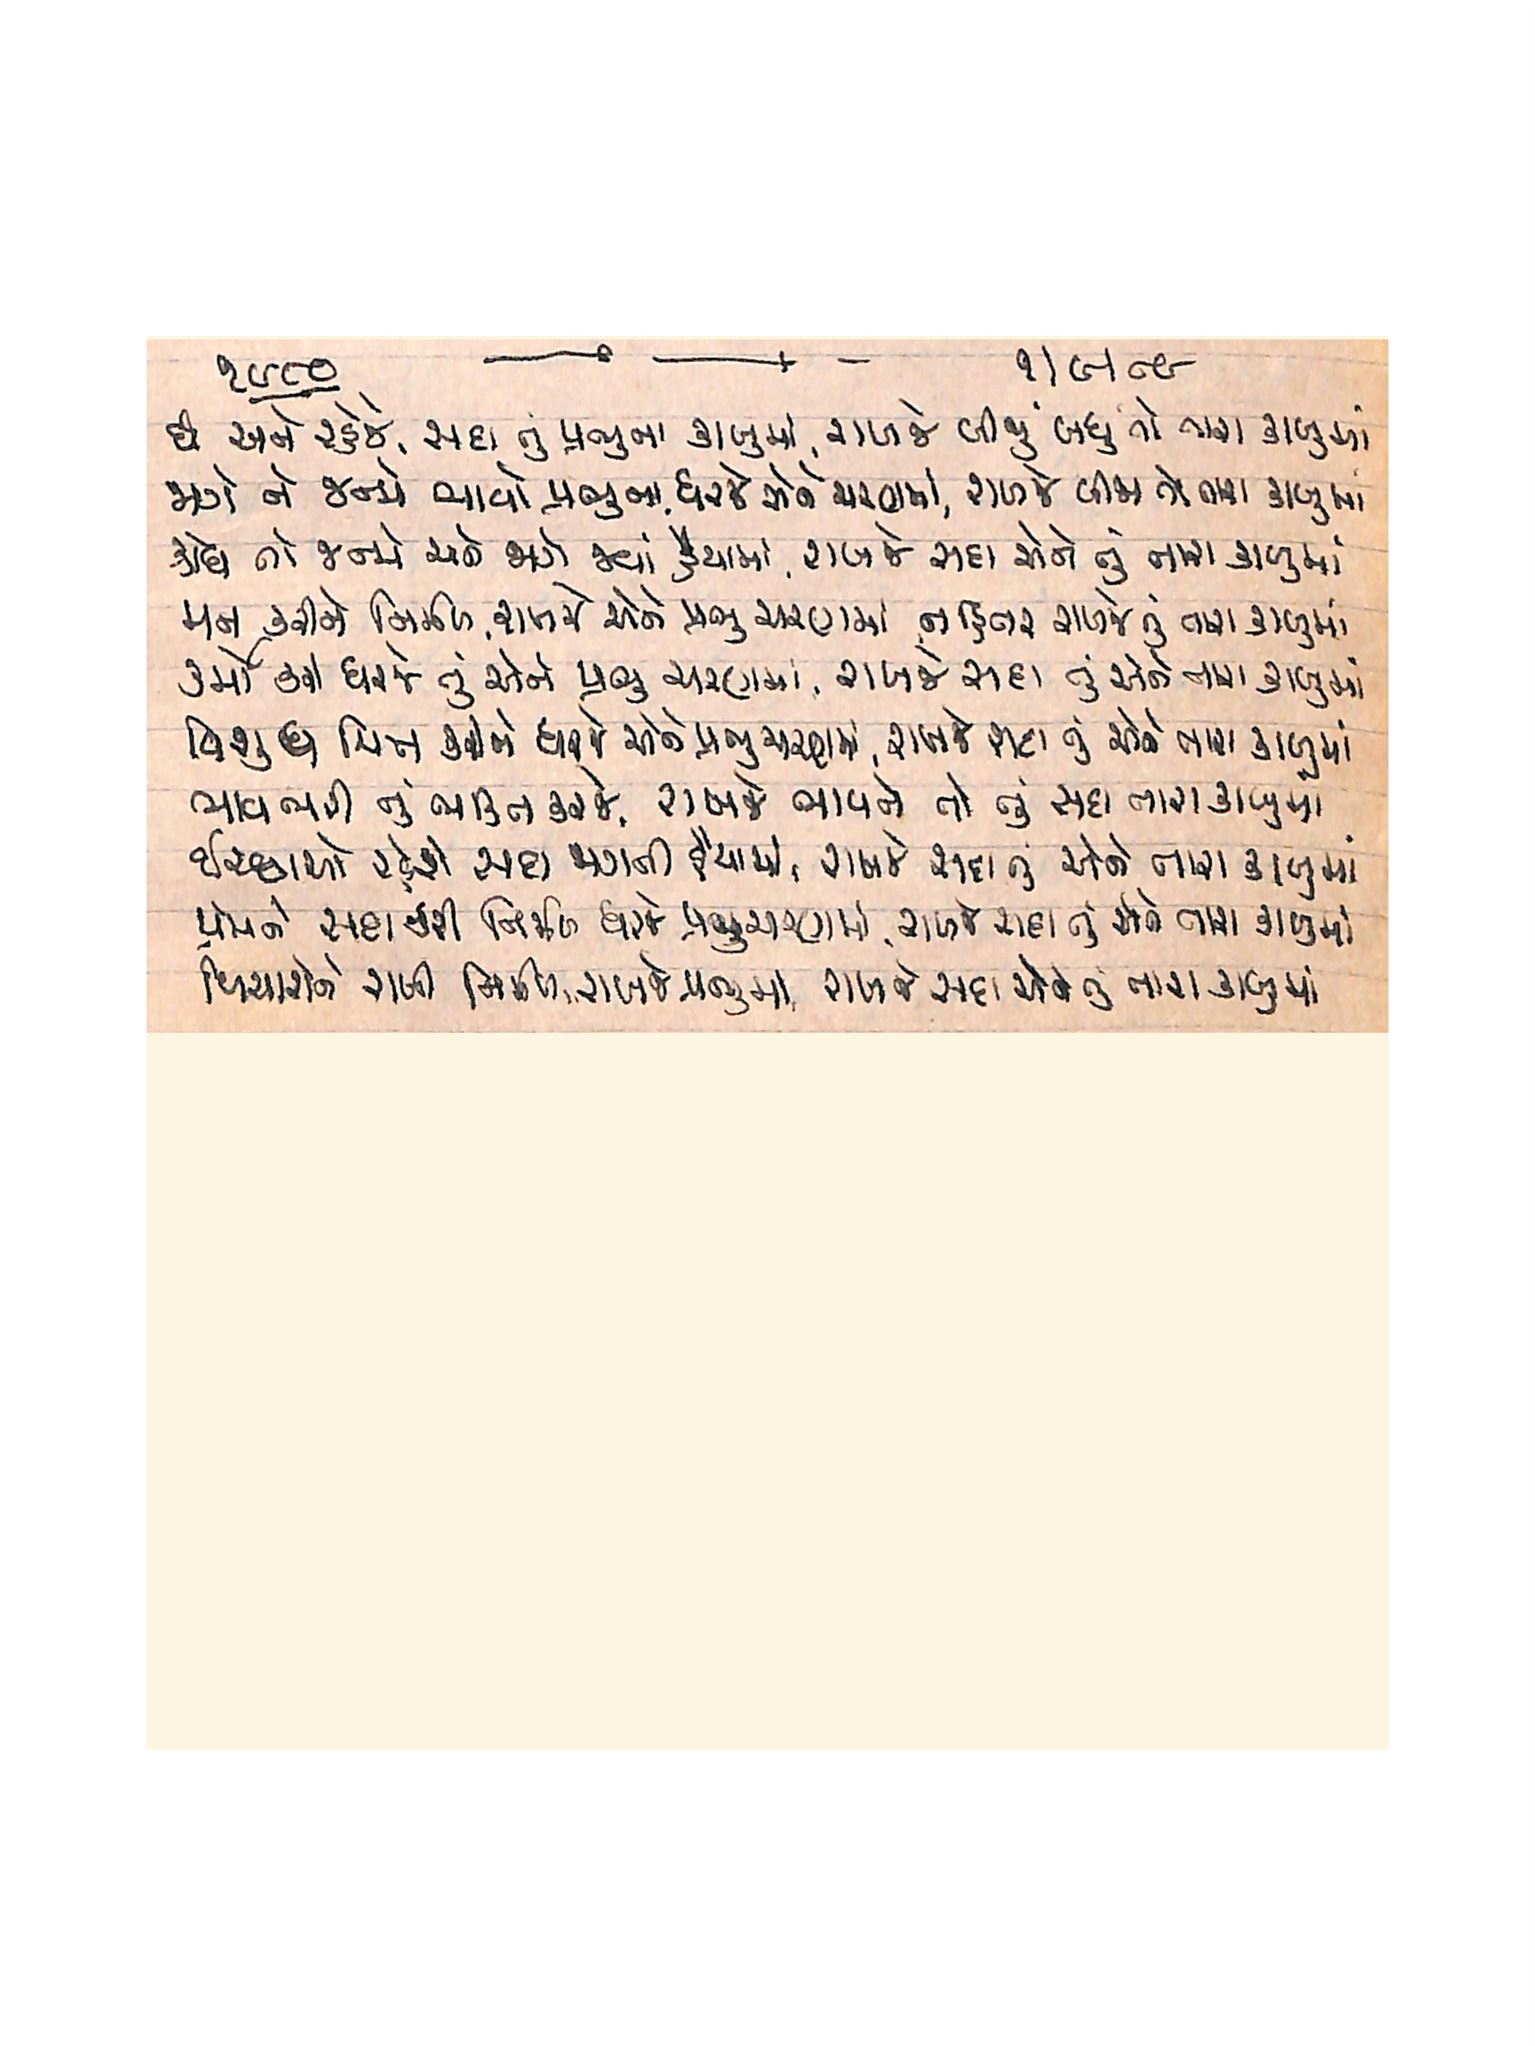 ૧૯૮૦ ૧/૯/૮૯
છે અને રહેજે, સદા તું પ્રભુના કાબુમાં, રાખજે બીજું બધું તો તારા કાબુમાં
જાગે ને જન્મે ભાવો પ્રભુના, ધરજે એને ચરણમાં, રાખજે બીજા તો તારા કાબુમાં
ક્રોધ તો જન્મે અને જાગે જ્યાં હૈયામાં, રાખજે સદા એને તું તારા કાબુમાં
મન કરીને નિર્મળ, રાખજે એને પ્રભુ ચરણમાં, નહિતર રાખજે તું તારા કાબુમાં
કર્મો કરી ધરજે તું એને પ્રભુ ચરણમાં, રાખજે સદા તું એને તારા કાબુમાં
વિશુધ્ધ ચિત્ત કરીને ધરજે એને પ્રભુચરણમાં, રાખજે સદા તું એને તારા કાબુમાં
ભાવ ભરી તું ભક્તિ કરજે, રાખજે ભાવને તો તું સદા તારા કાબુમાં
ઈચ્છાઓ રહેશે સદા જાગતી હૈયામાં, રાખજે સદા તું એને તારા કાબુમાં
પ્રેમને સદા કરી નિર્મળ ધરજે પ્રભુચરણમાં, રાખજે સદા તું એને તારા કાબુમાં
વિચારોને રાખી નિર્મળ, રાખજે પ્રભુમાં, રાખજે સદા એને તું તારા કાબુમાં